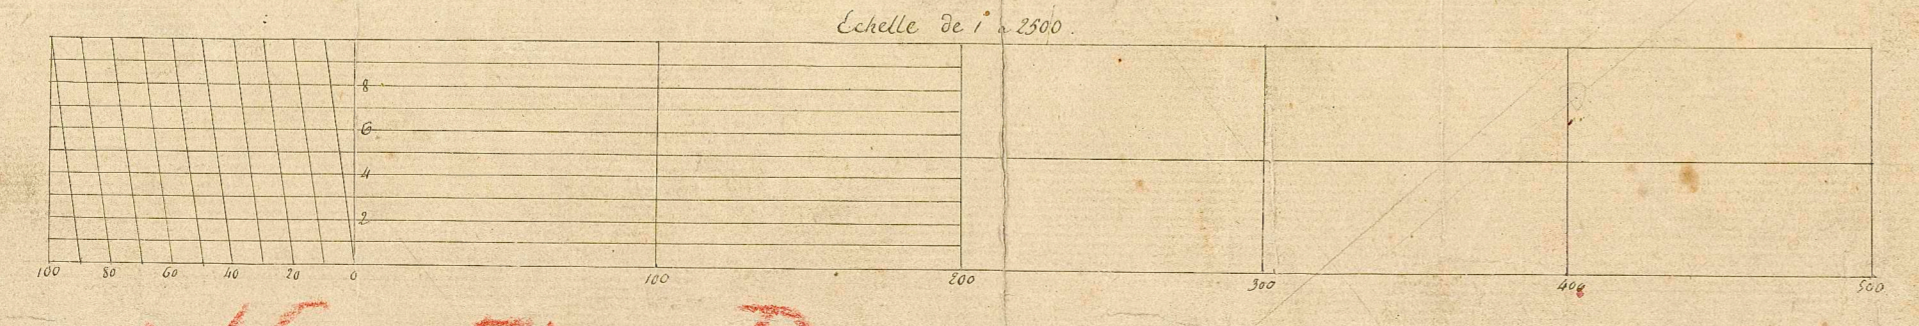 Echelle de 1 à 2500.
8
6
4
2
100 80 60 40 20 0 100 200 300 400 500